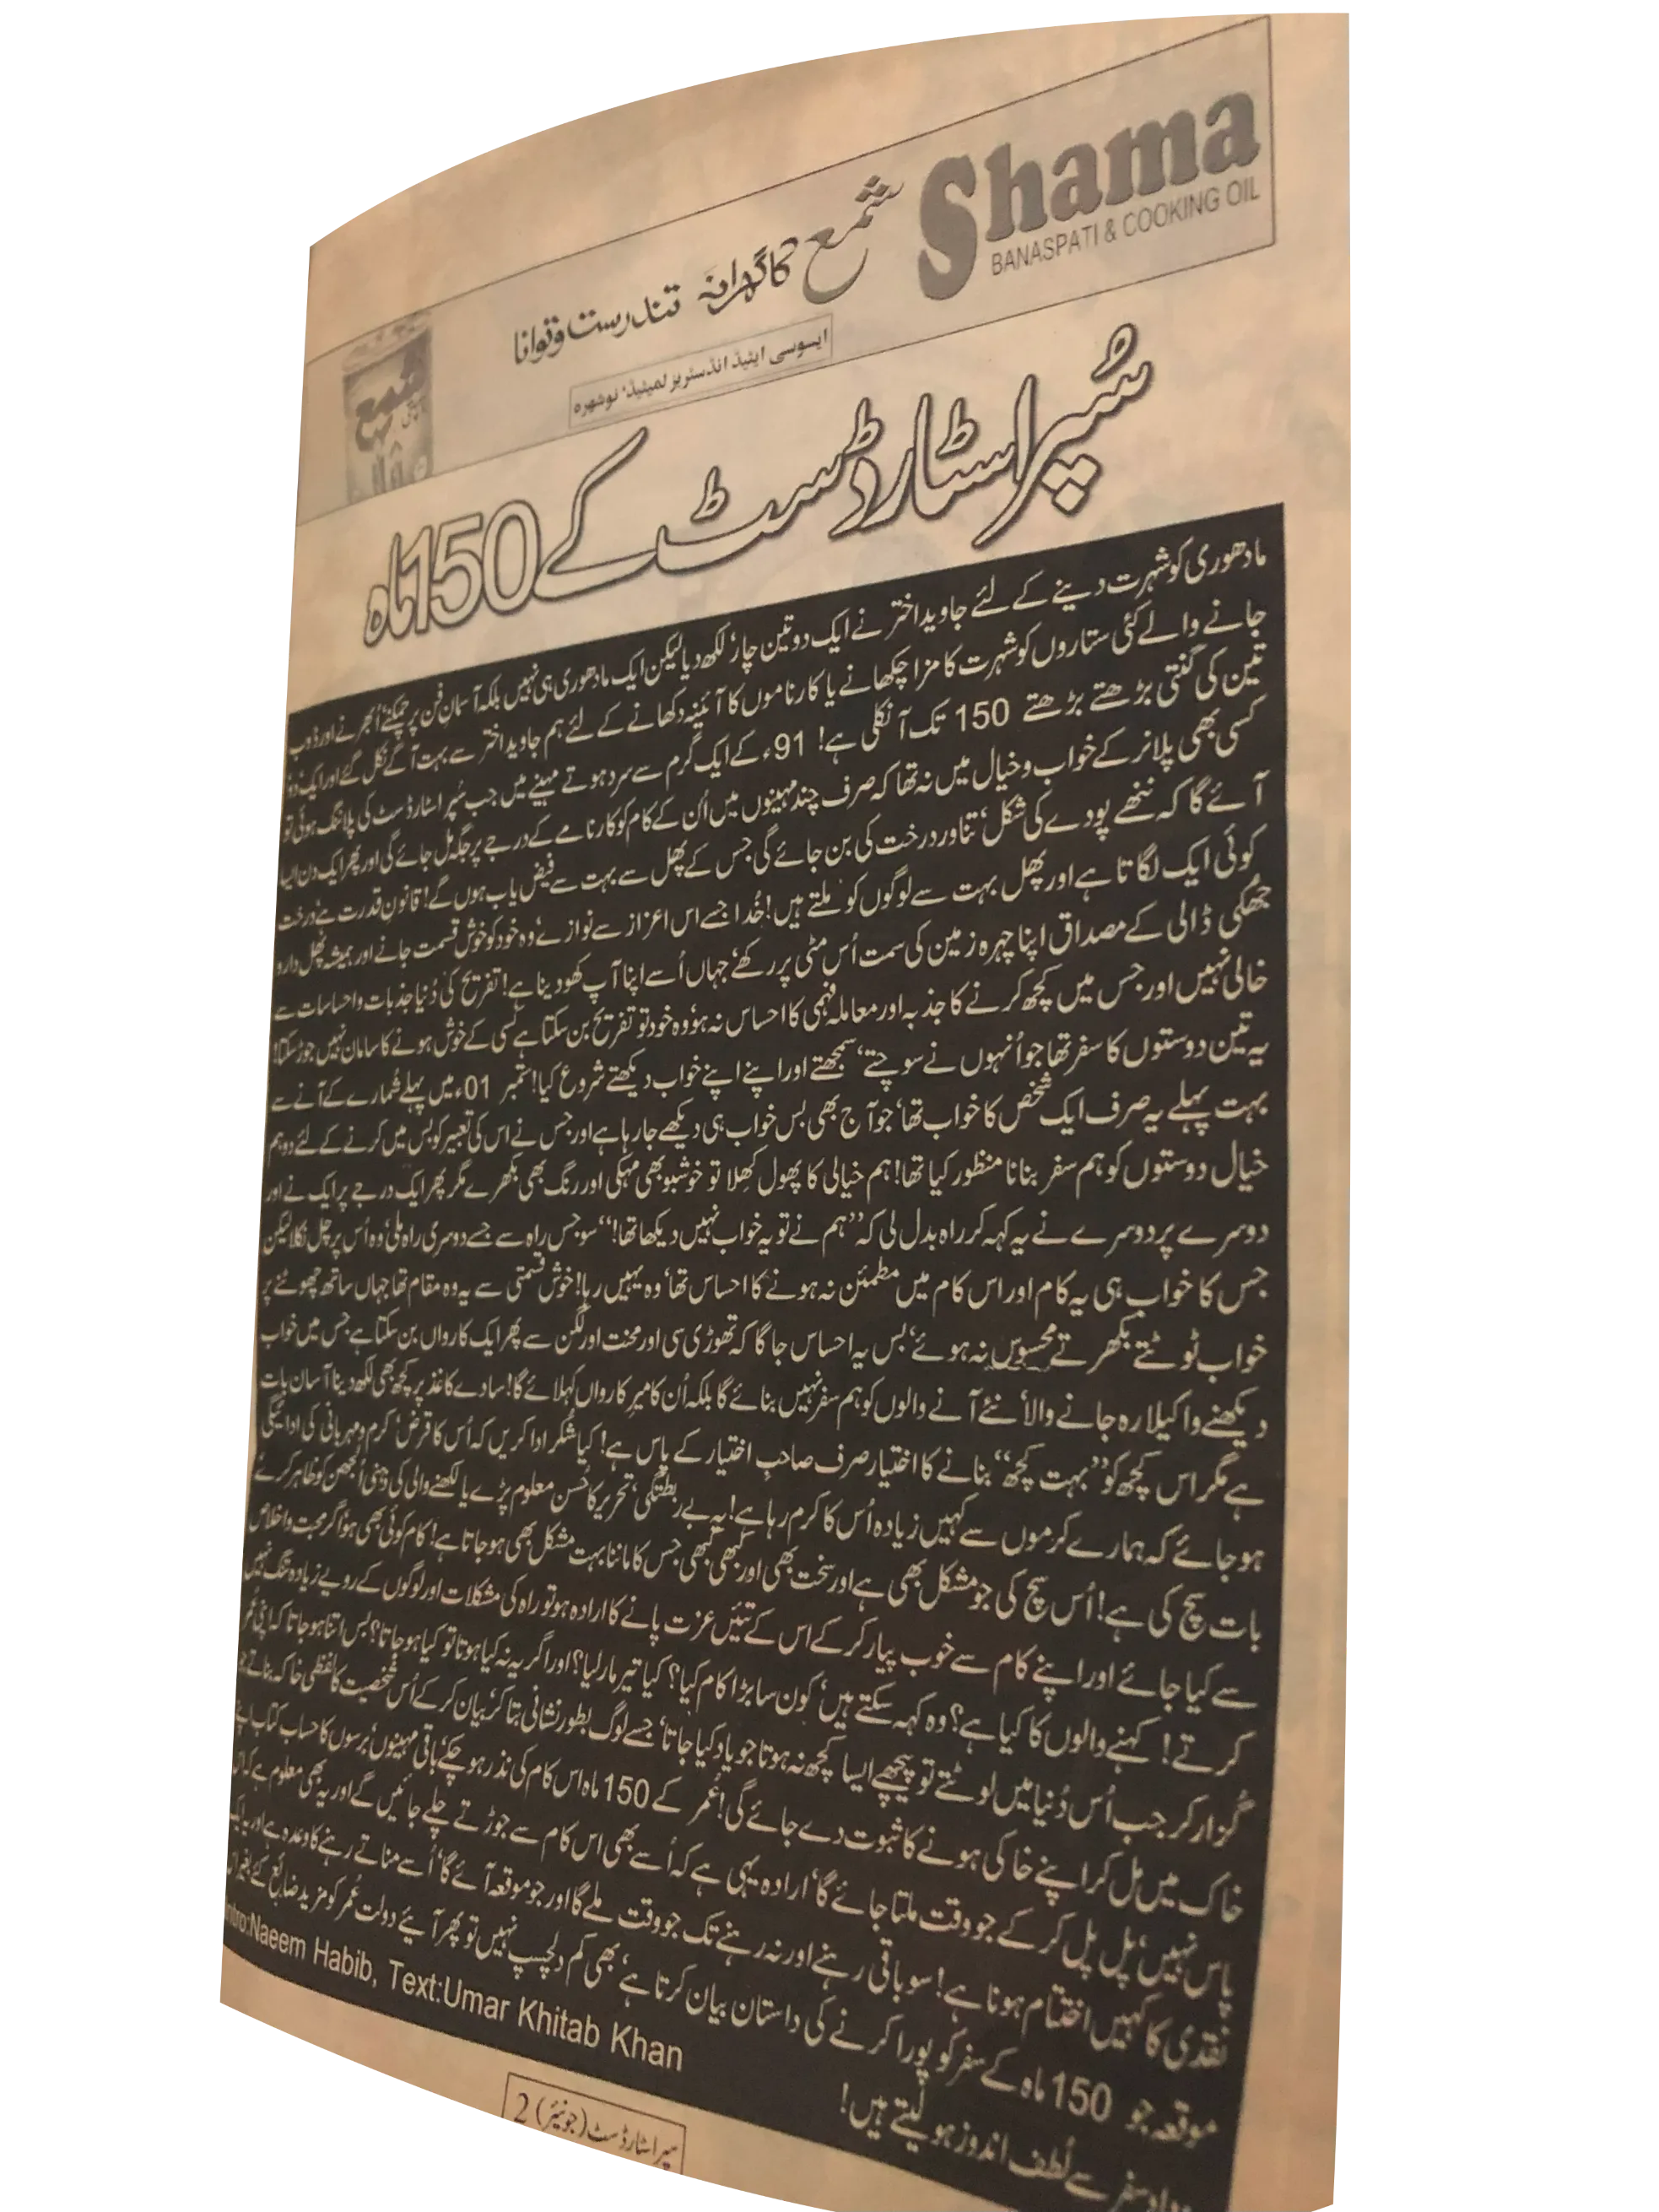 Shama
BANASPATI & COOKING OIL
شمع کا گھرانہ تندرست و توانا
ایسوسی ایٹیڈ انڈسٹریز لمیٹیڈ، نوشہرہ
شمع
سُپر اسٹار ڈسٹ کے 150 ماہ
مادھوری کو شہرت دینے کے لئے جاوید اختر نے ایک دو تین چار' لکھ دیا لیکن ایک مادھوری ہی نہیں بلکہ آسمانِ فن پر چمکنے' اُبھرنے اور ڈوب
جانے والے کئی ستاروں کو شہرت کا مزا چکھانے یا کارناموں کا آئینہ دکھانے کے لئے ہم جاوید اختر سے بہت آگے نکل گئے اور ایک دو'
تین کی گنتی بڑھتے بڑھتے 150 تک آ نکلی ہے! 91ء کے ایک گرم سے سرد ہوتے مہینے میں جب سُپر اسٹار ڈسٹ کی پلاننگ ہوئی تو
کسی بھی پلانر کے خواب و خیال میں نہ تھا کہ صرف چند مہینوں میں اُن کے کام کو کارنامے کے درجے پر جگہ مل جائے گی اور پھر ایک دن ایسا
آئے گا کہ ننھے پودے کی شکل' تناور درخت کی بن جائے گی جس کے پھل سے بہت سے فیض یاب ہوں گے! قانونِ قدرت ہے' درخت
کوئی ایک لگاتا ہے اور پھل بہت سے لوگوں کو ملتے ہیں! خُدا جسے اس اعزاز سے نوازے' وہ خود کو خوش قسمت جانے اور ہمیشہ پھل دار و
جھکی ڈالی کے مصداق اپنا چہرہ زمین کی سمت اُس مٹی پر رکھے' جہاں اُسے اپنا آپ کھو دینا ہے! تفریح کی دُنیا جذبات و احساسات سے
خالی نہیں اور جس میں کچھ کرنے کا جذبہ اور معاملہ فہمی کا احساس نہ ہو' وہ خود تو تفریح بن سکتا ہے' کسی کے خوش ہونے کا سامان نہیں جوڑ سکتا!
یہ تین دوستوں کا سفر تھا جو اُنہوں نے سوچتے' سمجھتے اور اپنے اپنے خواب دیکھتے شروع کیا! ستمبر 01ء میں پہلے شمارے کے آنے سے
بہت پہلے یہ صرف ایک شخص کا خواب تھا' جو آج بھی بس خواب ہی دیکھے جا رہا ہے اور جس نے اس کی تعبیر کو بس میں کرنے کے لئے دو ہم
خیال دوستوں کو ہم سفر بنانا منظور کیا تھا! ہم خیالی کا پھول کھلا تو خوشبو بھی مہکی اور رنگ بھی بکھرے مگر پھر ایک درجے پر ایک نے اور
دوسرے پر دوسرے نے یہ کہہ کر راہ بدل لی کہ ”ہم نے تو یہ خواب نہیں دیکھا تھا!“ سو جس راہ سے جسے دوسری راہ ملی' وہ اُس پر چل نکلا لیکن
جس کا خواب ہی یہ کام اور اس کام میں مطمئن نہ ہونے کا احساس تھا' وہ یہیں رہا! خوش قسمتی سے یہ وہ مقام تھا جہاں ساتھ چھوٹنے پر
خواب ٹوٹتے بکھرتے محسوس نہ ہوئے' بس یہ احساس جاگا کہ تھوڑی سی اور محنت اور لگن سے پھر ایک کارواں بن سکتا ہے جس میں خواب
دیکھنے والا اکیلا رہ جانے والا' نئے آنے والوں کو ہم سفر نہیں بنائے گا بلکہ اُن کا میرِ کارواں کہلائے گا! سادے کاغذ پر کچھ بھی لکھ دینا آسان بات
ہے مگر اس کچھ کو ”بہت کچھ“ بنانے کا اختیار صرف صاحبِ اختیار کے پاس ہے! کیا شُکر ادا کریں کہ اُس کا قرض' کرم و مہربانی کی ادائیگی
ہو جائے کہ ہمارے کرموں سے کہیں زیادہ اُس کا کرم رہا ہے! یہ بے ربطگی' تحریر کا حُسن معلوم پڑے یا لکھنے والی کی ذہنی اُلجھن کو ظاہر کرے'
بات سچ کی ہے! اُس سچ کی جو مشکل بھی ہے اور سخت بھی اور کبھی کبھی جس کا ماننا بہت مشکل بھی ہو جاتا ہے! کام کوئی بھی ہو' اگر محبت و اخلاص
سے کیا جائے اور اپنے کام سے خوب پیار کر کے اس کے تئیں عزت پانے کا ارادہ ہو تو راہ کی مشکلات اور لوگوں کے رویے زیادہ تنگ نہیں
کرتے! کہنے والوں کا کیا ہے؟ وہ کہہ سکتے ہیں' کون سا بڑا کام کیا؟ کیا تیر مار لیا؟ اور اگر یہ نہ کیا ہوتا تو کیا ہو جاتا؟ بس اتنا ہو جاتا کہ اپنی عُمر
گزار کر جب اُس دُنیا میں لوٹتے تو پیچھے ایسا کچھ نہ ہوتا جو یاد کیا جاتا' جسے لوگ بطور نشانی بتا کر' بیان کر کے اُس شخصیت کا لفظی خاکہ بناتے جو
خاک میں مل کر اپنے خاکی ہونے کا ثبوت دے جائے گی! عُمر کے 150 ماہ اس کام کی نذر ہو چکے' باقی مہینوں' برسوں کا حساب کتاب اپنے
پاس نہیں' پل پل کر کے جو وقت ملتا جائے گا' ارادہ یہی ہے کہ اُسے بھی اس کام سے جوڑتے چلے جائیں گے اور یہ بھی معلوم ہے کہ اس
نقدی کا کہیں اختتام ہونا ہے! سو باقی رہنے اور نہ رہنے تک جو وقت ملے گا اور جو موقعہ آئے گا' اُسے مناتے رہنے کا وعدہ ہے اور یہ ایک
موقعہ جو 150 ماہ کے سفر کو پورا کرنے کی داستان بیان کرتا ہے' بھی کم دلچسپ نہیں تو پھر آیئے دولت عُمر کو مزید ضائع کئے بغیر اس
سفر سے لُطف اندوز ہو لیتے ہیں!
Intro:Naeem Habib, Text:Umar Khitab Khan
سپر اسٹار ڈسٹ (جونیئر) 2